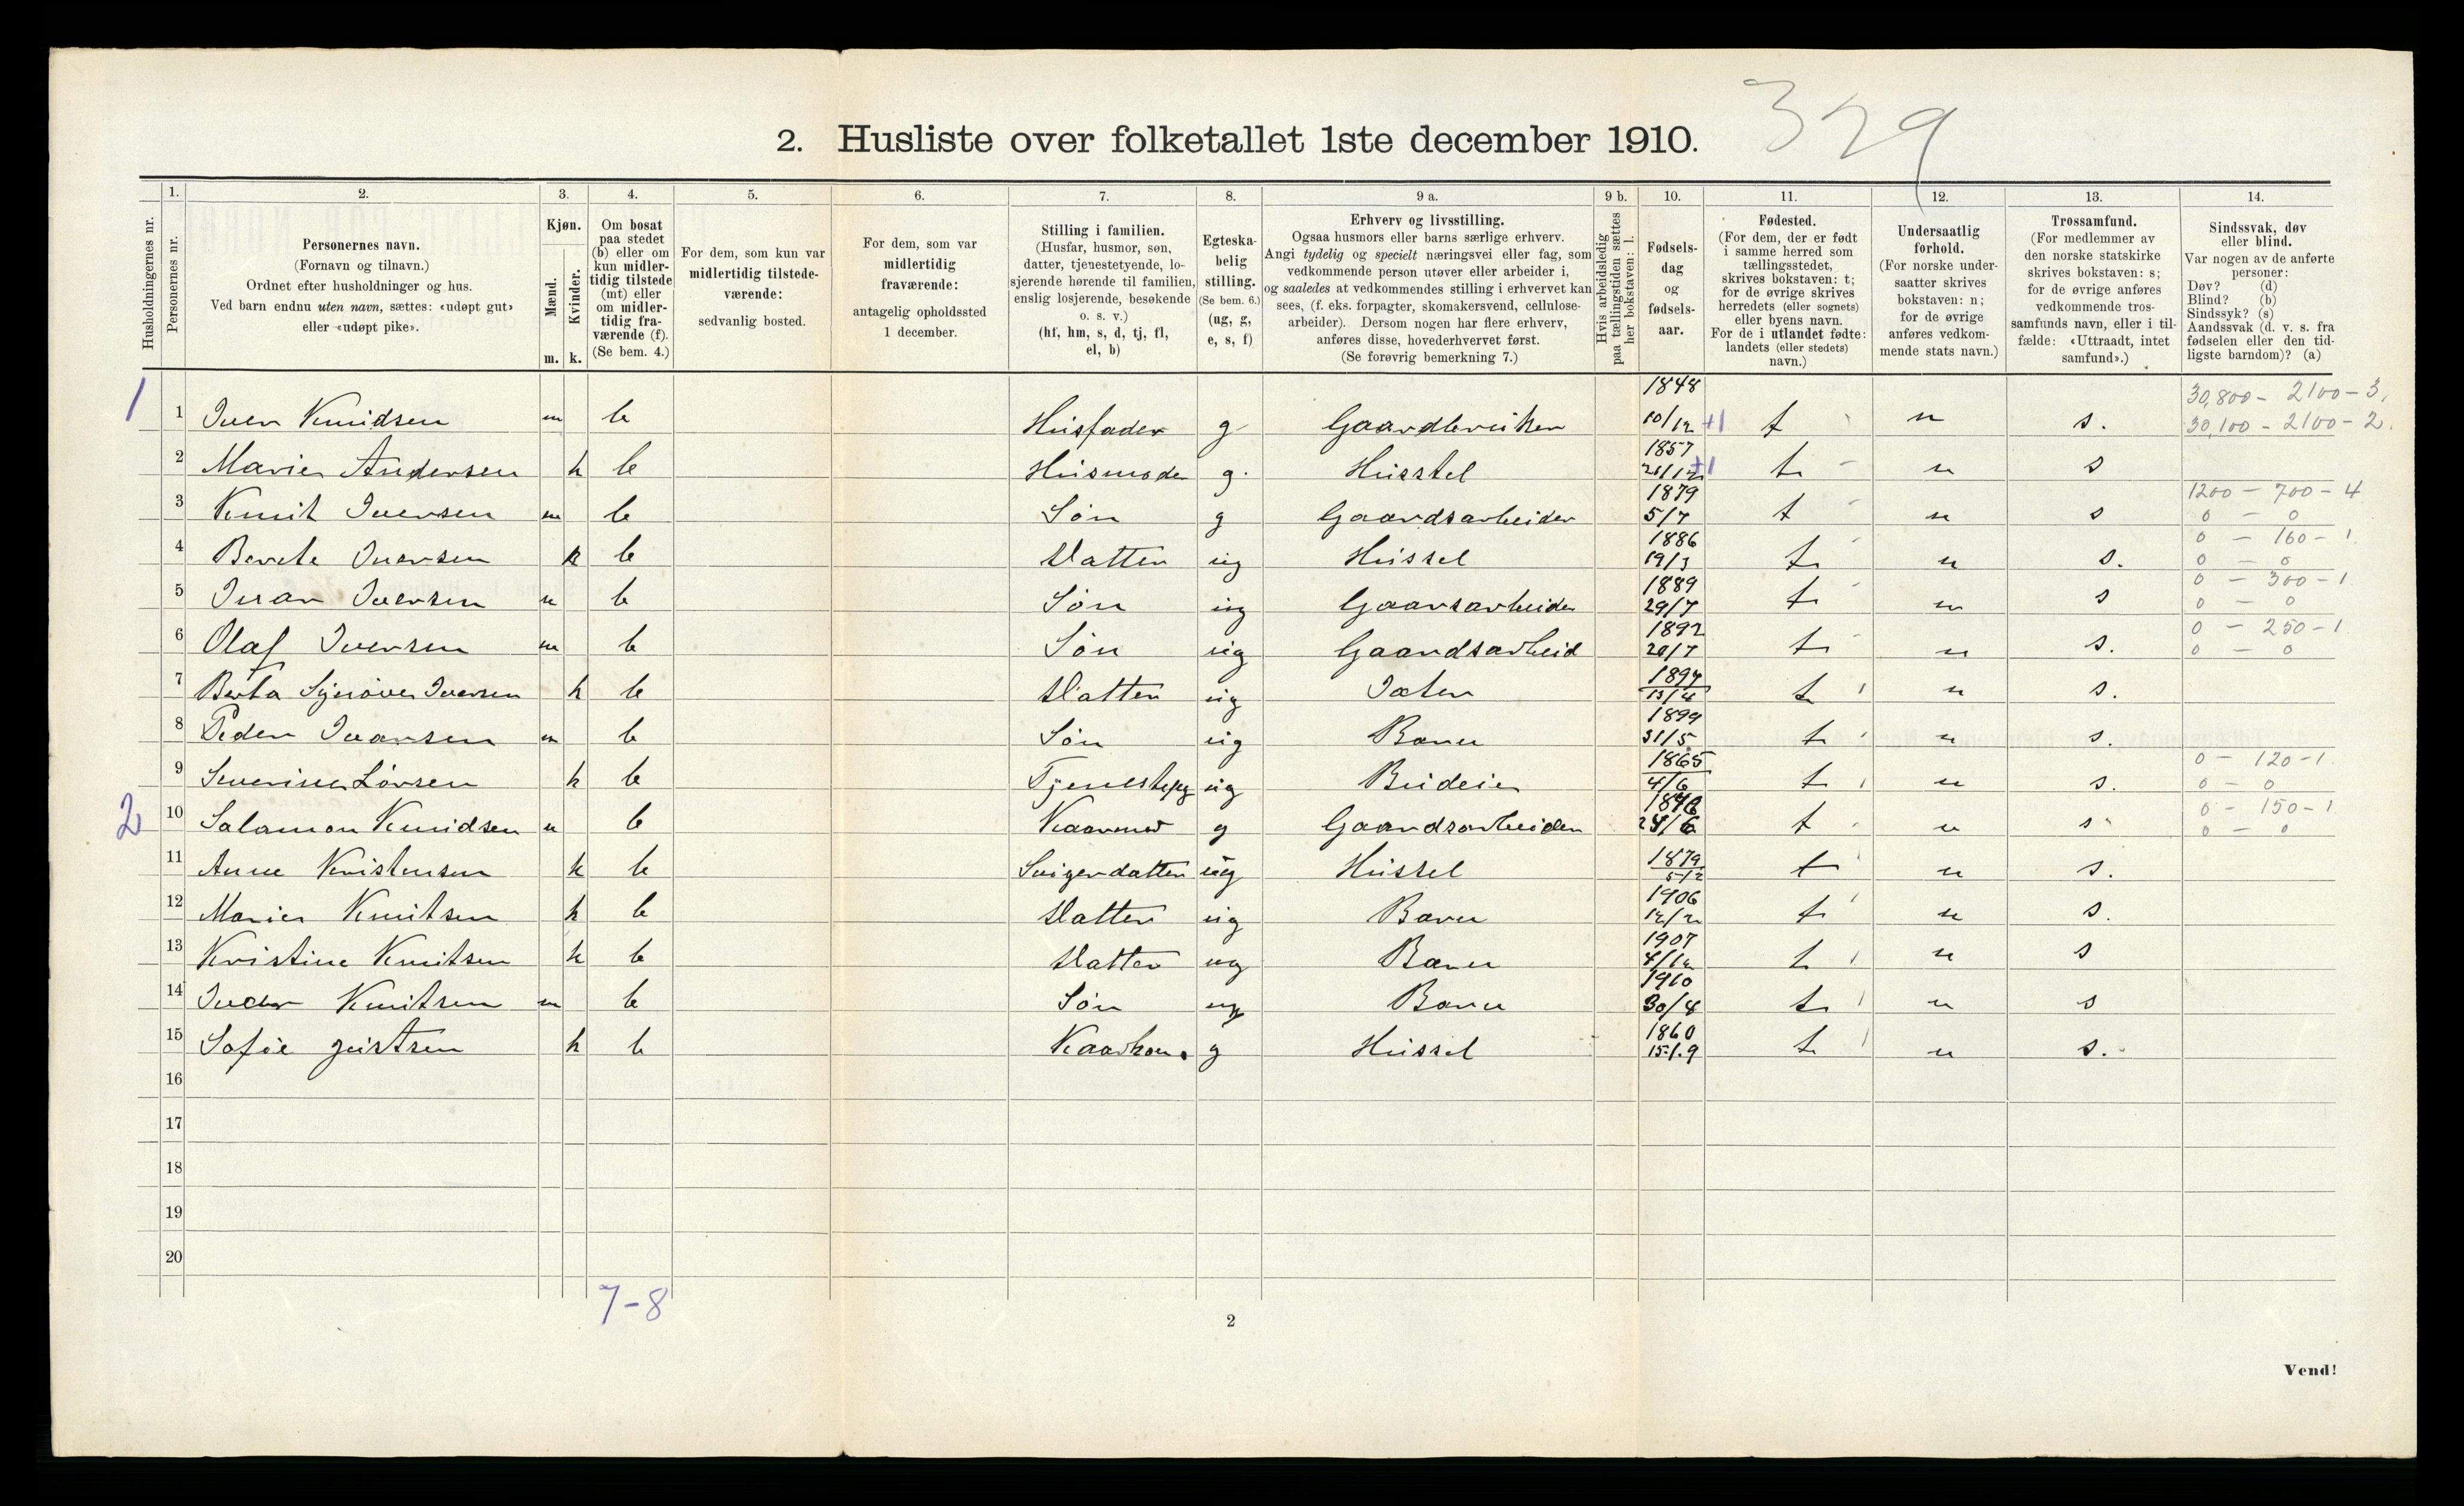 329
2. Husliste over folketallet 1ste december 1910.
Husholdningernes nr.
1.
Personernes nr.
2.
Personernes navn.
(Fornavn og tilnavn.)
Ordnet efter husholdninger og hus.
Ved barn endnu uten navn, sættes: «udøpt gut»
eller «udøpt pike».
3.
Kjøn.
Mænd.
Kvinder.
m. k.
4.
Om bosat
paa stedet
(b) eller om
kun midler-
tidig tilstede
(mt) eller
om midler-
tidig fra-
værende (f).
(Se bem. 4.)
5.
For dem, som kun var
midlertidig tilstede-
værende:
sedvanlig bosted.
6.
For dem, som var
midlertidig
fraværende:
antagelig opholdssted
1 december.
7.
Stilling i familien.
(Husfar, husmor, søn,
datter, tjenestetyende, lo-
sjerende hørende til familien,
enslig losjerende, besøkende
o. s. v.)
(hf, hm, s, d, tj, fl,
el, b)
8.
Egteska-
belig
stilling.
(Se bem. 6.)
(ug, g,
e, s, f)
9 a.
Erhverv og livsstilling.
Ogsaa husmors eller barns særlige erhverv.
Angi tydelig og specielt næringsvei eller fag, som
vedkommende person utøver eller arbeider i,
og saaledes at vedkommendes stilling i erhvervet kan
sees, (f. eks. forpagter, skomakersvend, cellulose-
arbeider). Dersom nogen har flere erhverv,
anføres disse, hovederhvervet først.
(Se forøvrig bemerkning 7.)
9 b.
Hvis arbeidsledig
paa tællingstiden sættes
her bokstaven: l.
10.
Fødsels-
dag
og
fødsels-
aar.
11.
Fødested.
(For dem, der er født
i samme herred som
tællingsstedet,
skrives bokstaven: t;
for de øvrige skrives
herredets (eller sognets)
eller byens navn.
For de i utlandet fødte:
landets (eller stedets)
navn.)
12.
Undersaatlig
forhold.
(For norske under-
saatter skrives
bokstaven: n;
for de øvrige
anføres vedkom-
mende stats navn.)
13.
Trossamfund.
(For medlemmer av
den norske statskirke
skrives bokstaven: s;
for de øvrige anføres
vedkommende tros-
samfunds navn, eller i til-
fælde: «Uttraadt, intet
samfund».)
14.
Sindssvak, døv
eller blind.
Var nogen av de anførte
personer:
Døv? (d)
Blind? (b)
Sindssyk? (s)
Aandssvak (d. v. s. fra
fødselen eller den tid-
ligste barndom)? (a)
1 1 Iver Knudsen m b Husfader g Gaardbruker 1848 10/12 +1 t n s. 30,800 - 2100 - 3. 30,100 - 2100 - 2.
2 Marie Andersen k b Husmoder g. Husstel 1857 21/12 +1 t n s
3 Knut Iversen m b Søn g Gaardsarbeider 1879 5/7 t n s 1200 - 700 - 4 0 - 0
4 Berete Iversen k b Datter ug Hussel 1886 19/3 t n s. 0 - 160 - 1. 0 - 0
5 Iversen m b Søn ug Gaarsarbeider 1889 29/7 t n s 0 - 300 - 1 0 - 0
6 Olaf Iversen m b Søn ug Gaardsarbeid 1892 20/7 t n s. 0 - 250 - 1 0 - 0
7 Berta Synøve Iversen k b Datter ug 1894 13/4 t n s.
8 Peder Iversen m b Søn ug Barn 1899 31/5 t n s.
9 Severine Larsen k b ug Budeie 1865 4/6 t n s. 0 - 120 - 1. 0 - 0
2 10 Salamon Knudsen m b Kaarmand g Gaardsarbeider t n s 0 - 150 - 1 0 - 0
11 Anne Kristensen k b Svigerdatter ug Hussel 1879 5/2 t n s.
12 Marie Knutsen k b Datter ug Barn 1906 12/2 t n s.
13 Kristine Knutsen k b Datter ug Barn 1907 4/12 t n s
14 Iver Knutsen m b Søn ug Barn 1910 30/4 t n s
15 Sofie k b Kaarkone g Hussel 1860 15/9 t n s.
16
17
18
19
20
7-8
2
Vend!